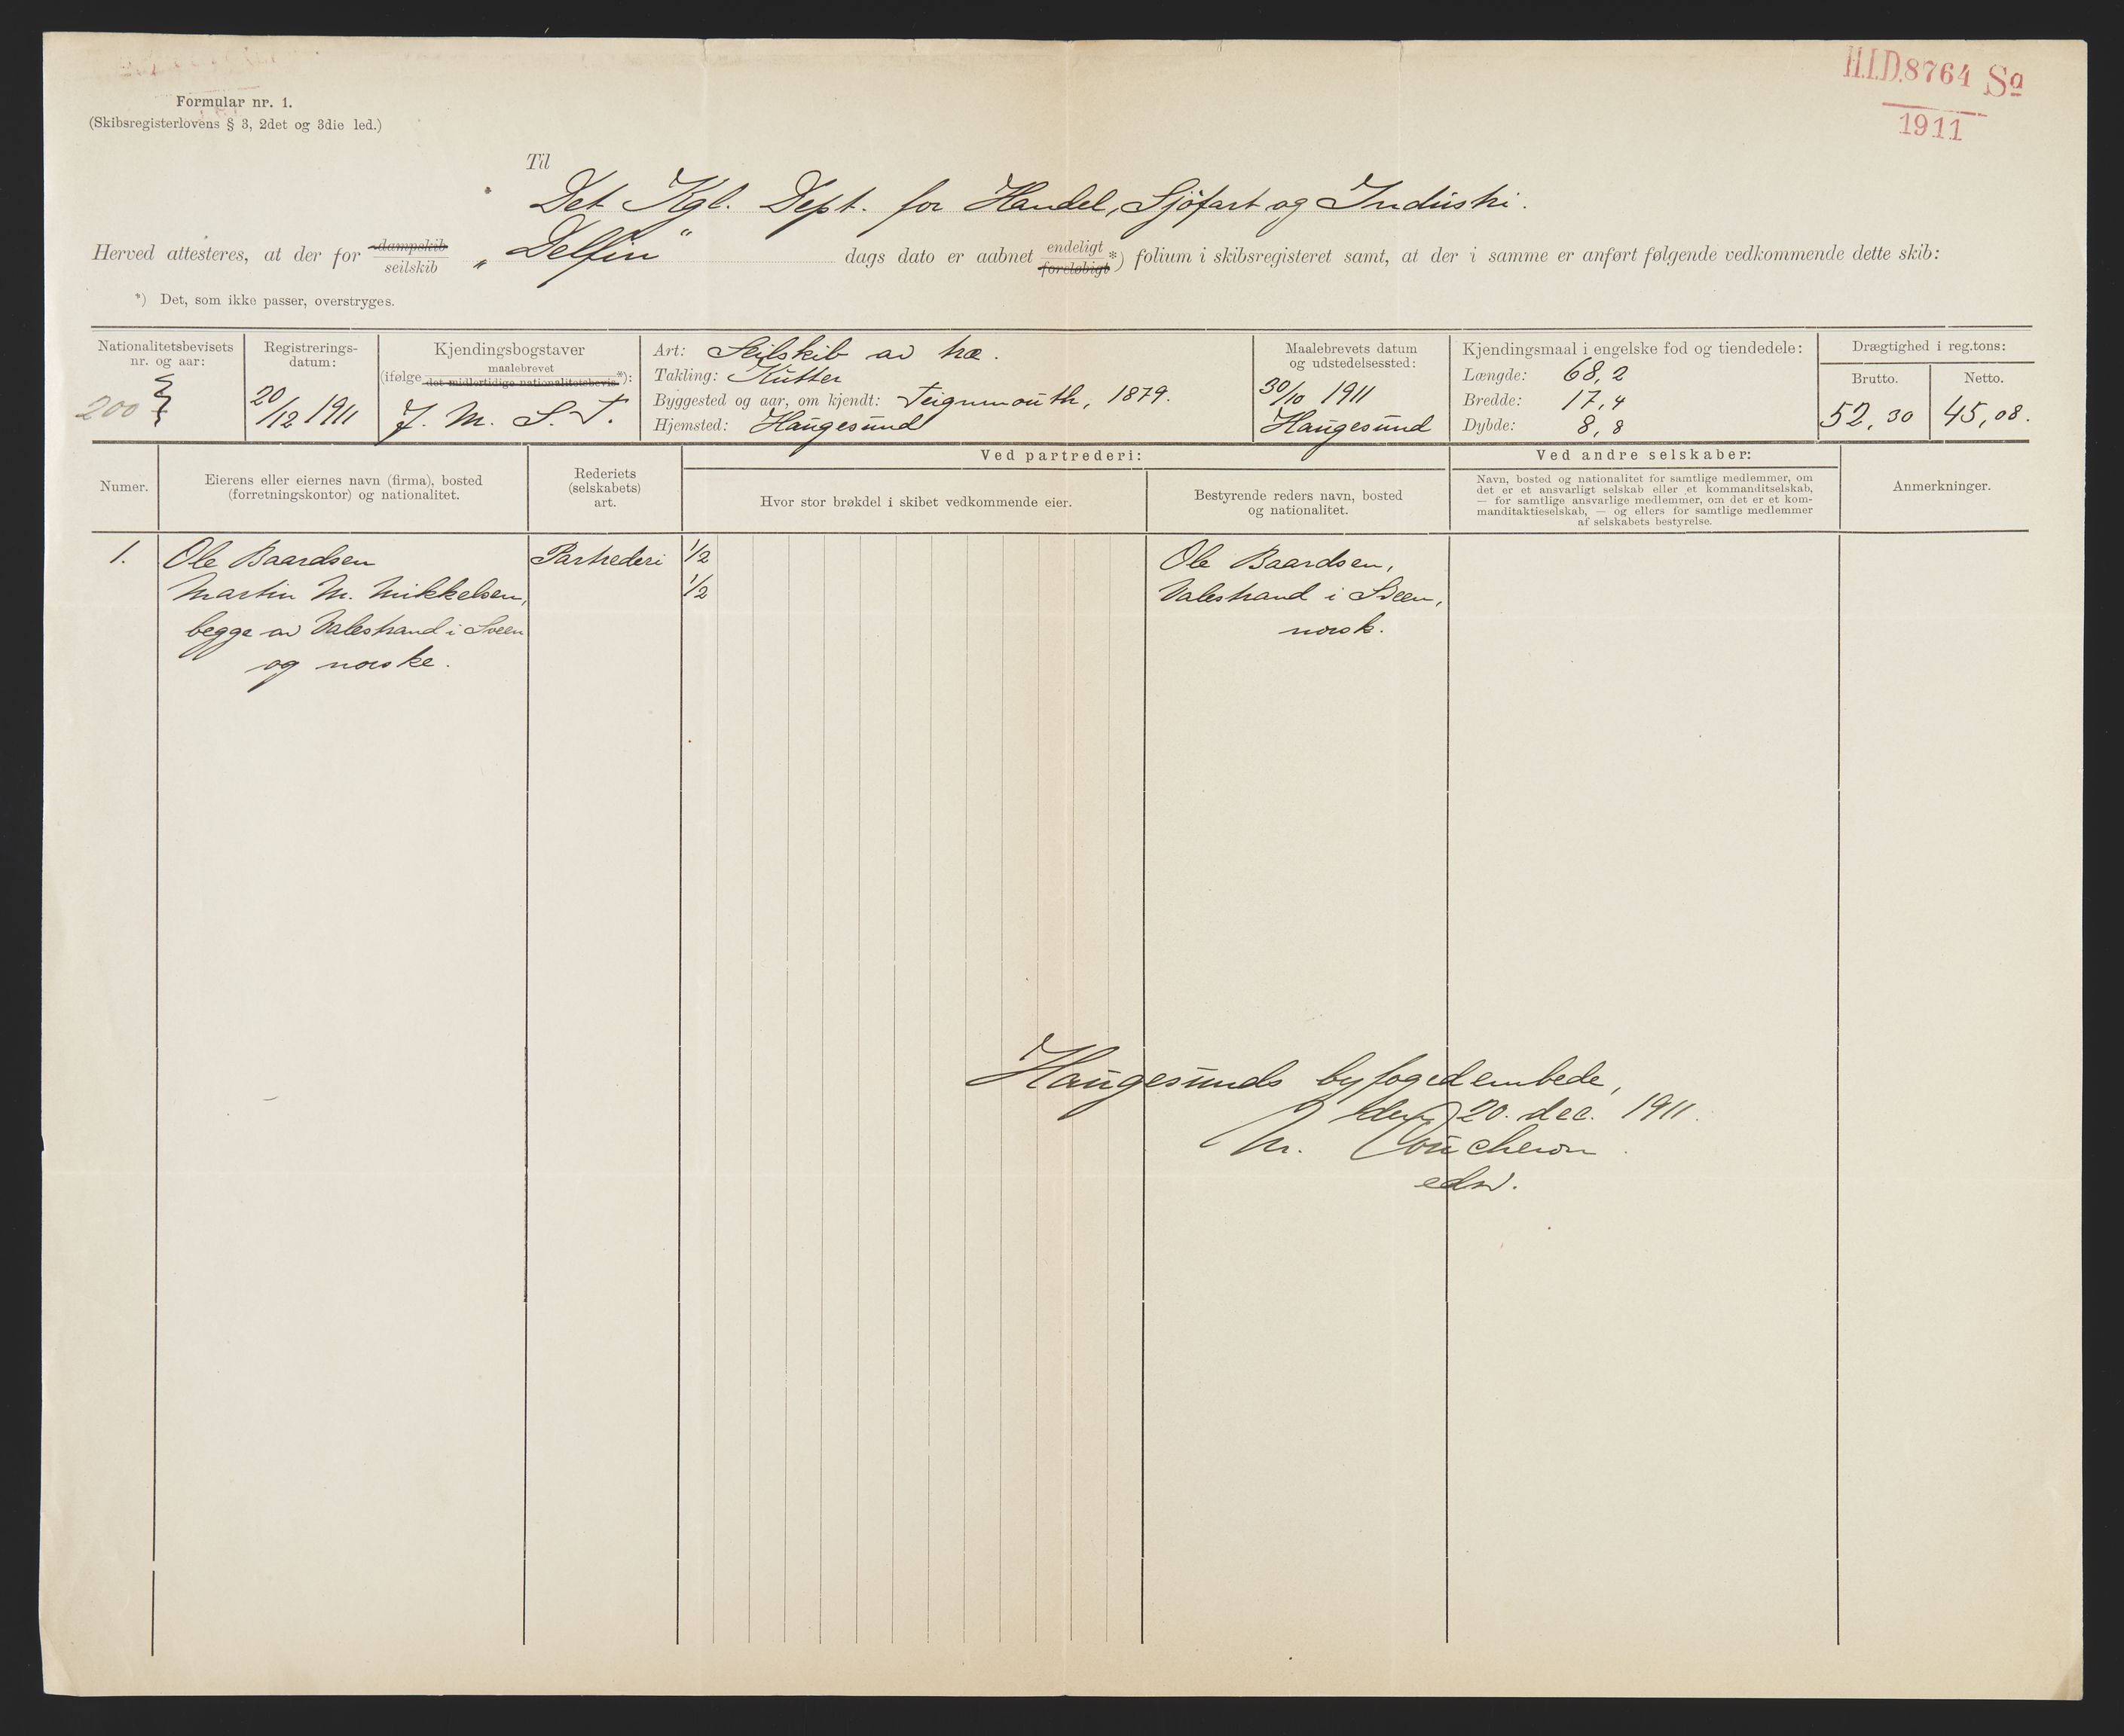 H.I.D. 8764 Sa
1911
Formular nr. 1.
(Skibsregisterlovens § 3, 2det og 3die led.)
Til
Det Kgl. Dept. for Handel, Sjöfart og Industri.
Herved attesteres, at der for dampskib seilskib „Delfin“ dags dato er aabnet endeligt foreløbigt *) folium i skibsregisteret samt, at der i samme er anført følgende vedkommende dette skib:
*) Det, som ikke passer, overstryges.
Nationalitetsbevisets
nr. og aar:
200
Registrerings-
datum:
20/12 1911
Kjendingsbogstaver
maalebrevet
(ifølge det midlertidige nationalitetsbevis *):
J. M. S. T.
Art: Seilskib av træ.
Takling: Kutter
Byggested og aar, om kjendt: Teignmouth, 1879.
Hjemsted: Haugesund
Maalebrevets datum
og udstedelsessted:
30/10 1911
Haugesund
Kjendingsmaal i engelske fod og tiendedele:
Længde: 68,2
Bredde: 17,4
Dybde: 8,8
Drægtighed i reg.tons:
Brutto. Netto.
52,30 45,08.
Numer.
Eierens eller eiernes navn (firma), bosted
(forretningskontor) og nationalitet.
Rederiets
(selskabets)
art.
Ved partrederi:
Hvor stor brøkdel i skibet vedkommende eier.
Bestyrende reders navn, bosted
og nationalitet.
Ved andre selskaber:
Navn, bosted og nationalitet for samtlige medlemmer, om
det er et ansvarligt selskab eller et kommanditselskab,
— for samtlige ansvarlige medlemmer, om det er et kom-
manditaktieselskab, — og ellers for samtlige medlemmer
af selskabets bestyrelse.
Anmerkninger.
1. Ole Baardsen Partrederi 1/2 Ole Baardsen,
Martin M. Mikkelsen, 1/2 Valestrand i Sveen,
begge av Valestrand i Sveen norsk.
og norske.
Haugesunds byfogedembede,
den 20. dec. 1911.
M. Coucheron
edsv.